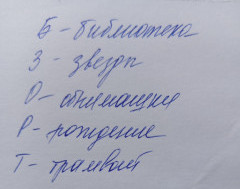 Б - библиотека
З - звезда
О - обнимашки
Р - рождение
Т - трамвай